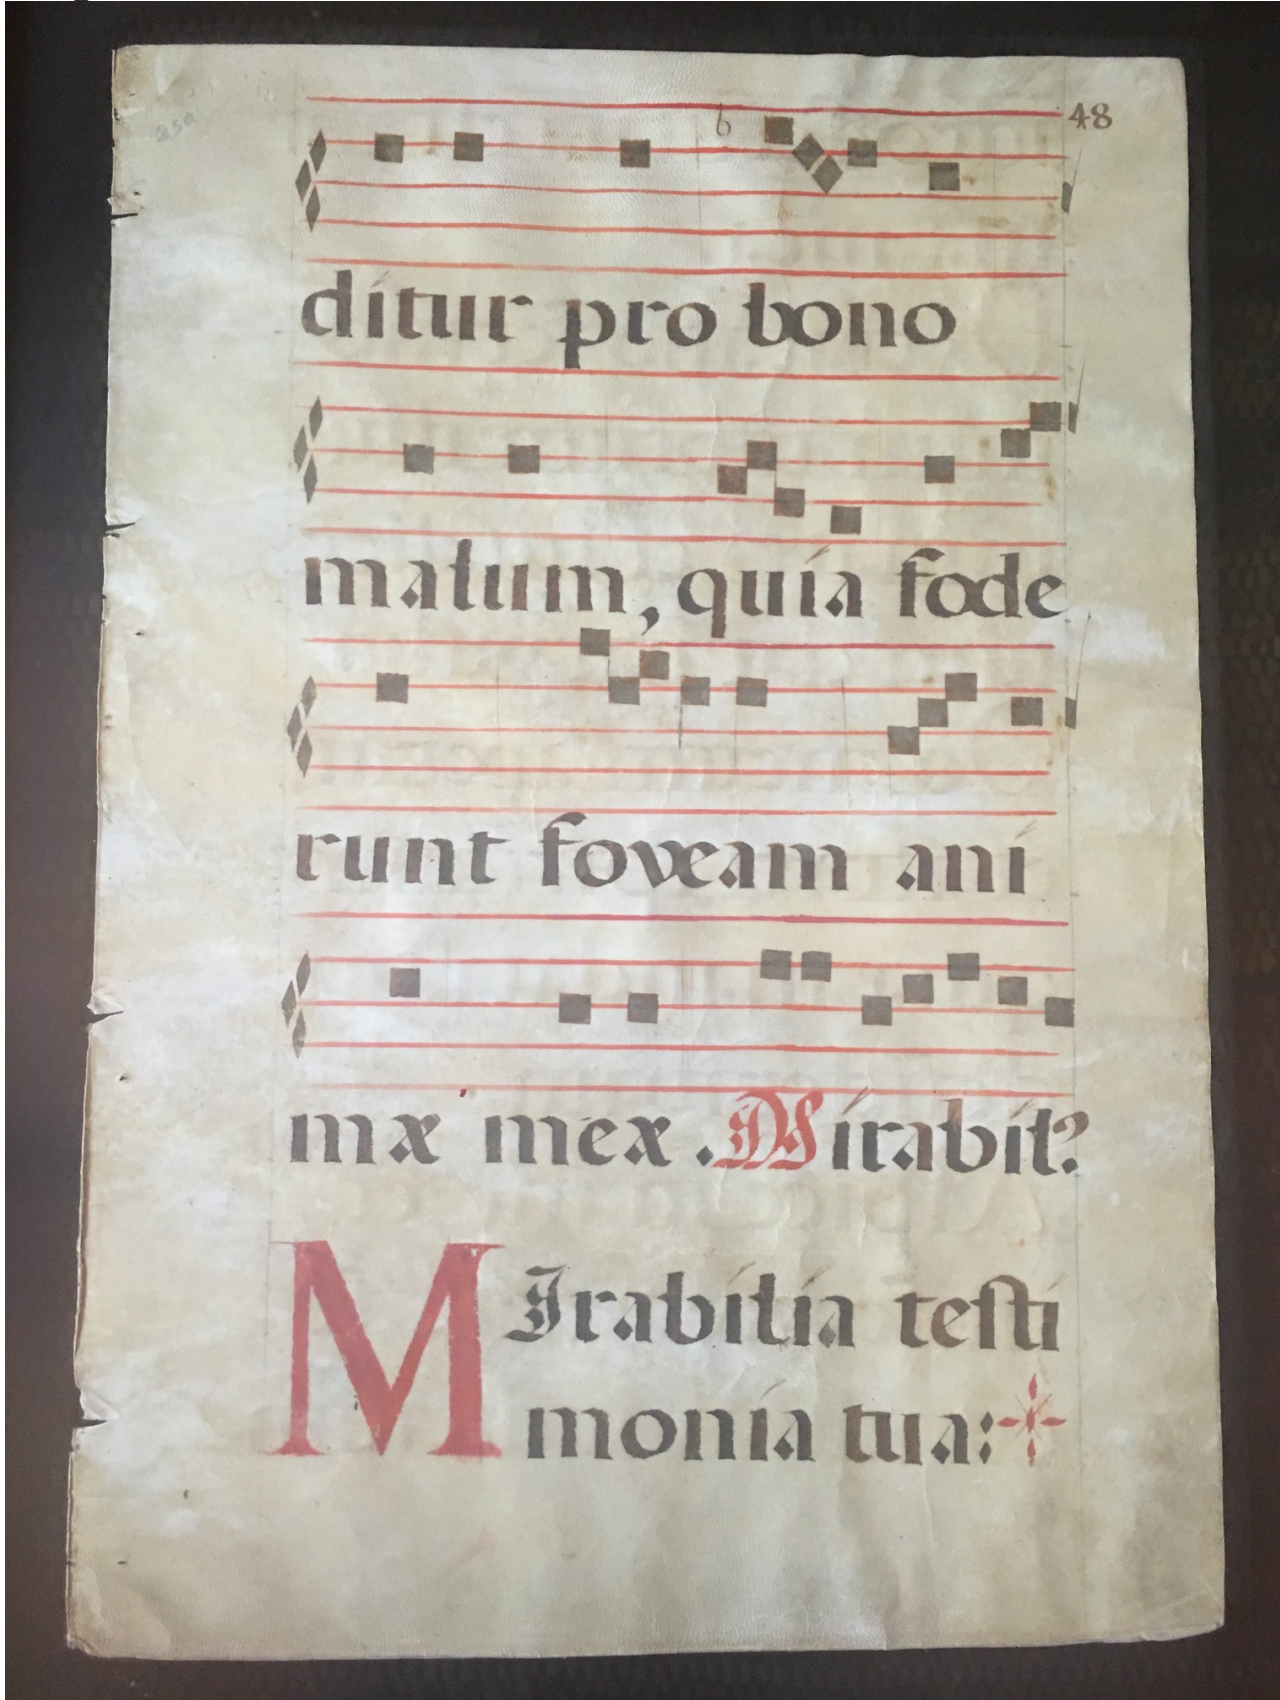 48
ditur pro bono
malum, quia fode
runt foveam ani
mæ meæ. Mirabil?
MIrabilia testi
monia tua: